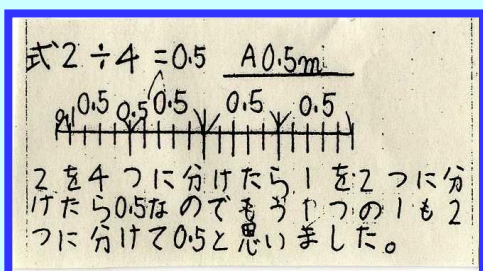 式2÷4=0.5 A0.5m
0.1 0.5 0.5 0.5 0.5 0.5
2を4つに分けたら1を2つに分
けたら0.5なのでもう1つの1も2
つに分けて0.5と思いました。